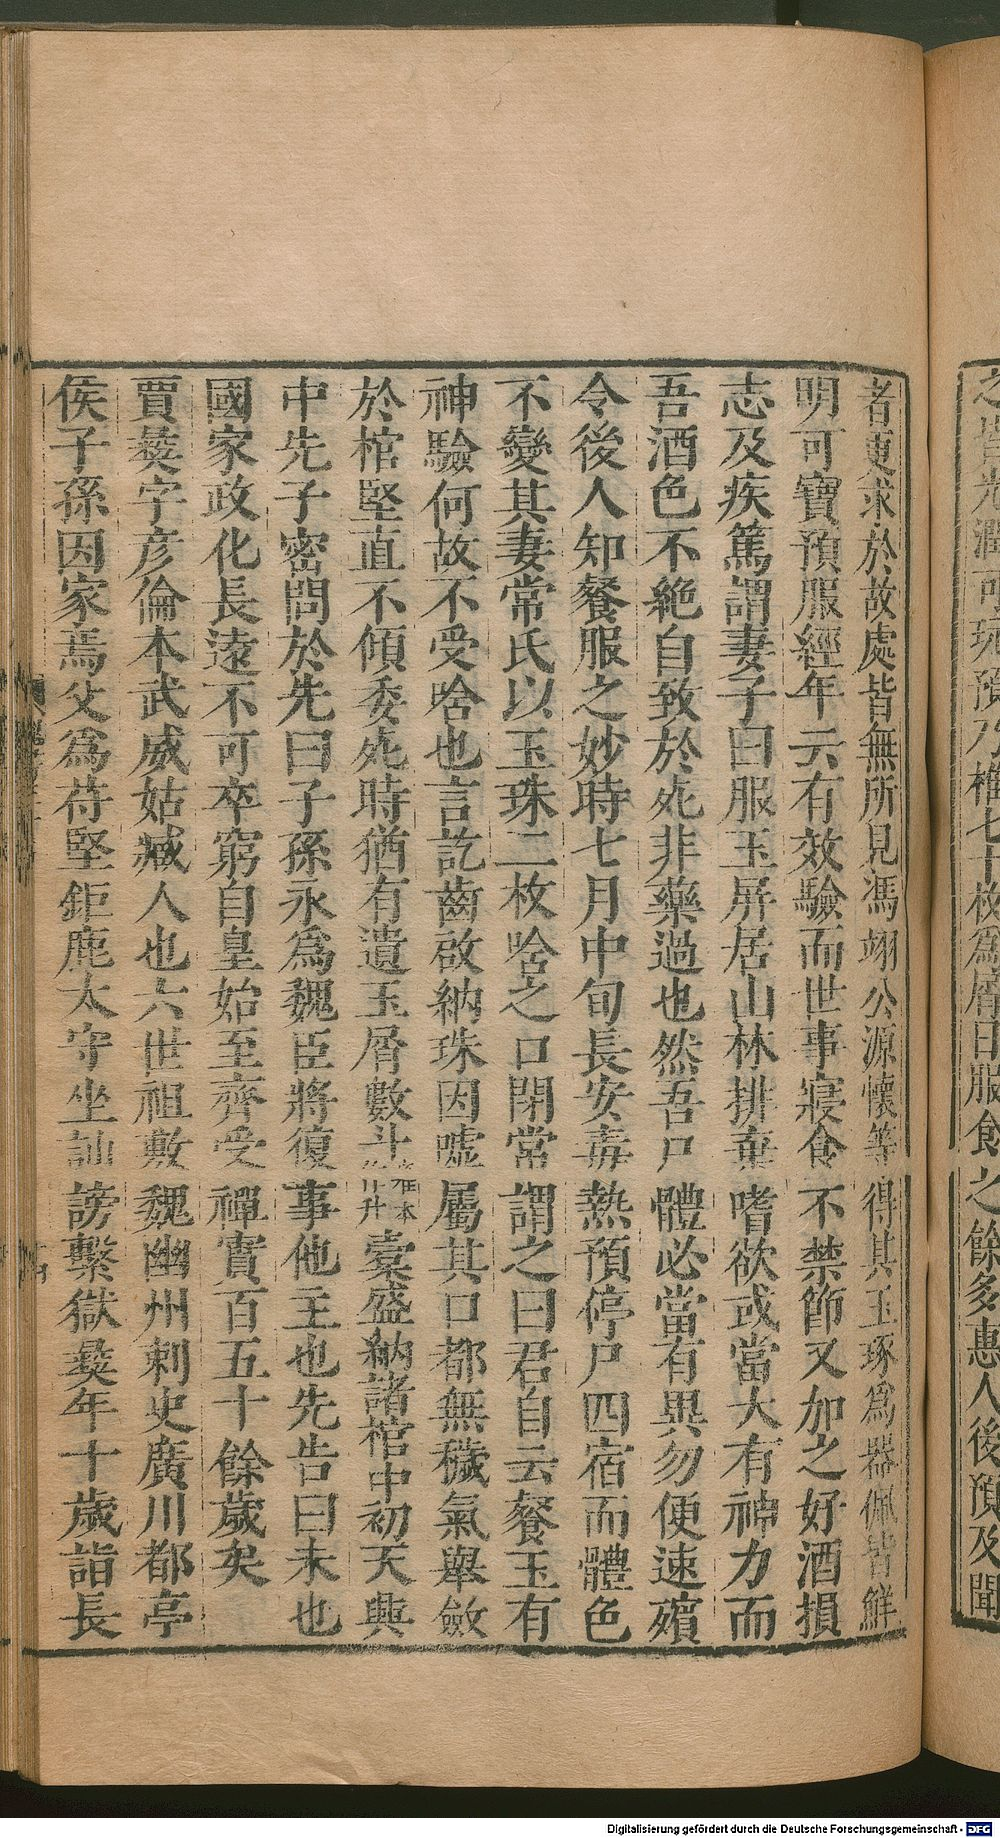 之皆光潤可玩預乃椎七十枚爲屑日服食之餘多惠人後預及聞
者更求於故處皆無所見馮翊公源懷等得其玉琢爲器佩皆鮮
明可寶預服經年云有效驗而世事寢食不禁節又加之好酒損
志及疾篤謂妻子曰服玉屏居山林排棄嗜欲或當大有神力而
吾酒色不絶自致於死非藥過也然吾尸體必當有異勿便速殯
令後人知餐服之妙時七月中旬長安毒熱預停尸四宿而體色
不變其妻常氏以玉珠二枚唅之口閉常謂之曰君自云餐玉有
神驗何故不受唅也言訖齒啟納珠因噓屬其口都無穢氣舉斂
於棺堅直不傾委死時猶有遺玉屑數斗橐盛納諸棺中初天興
中先子密問於先曰子孫永爲魏臣將復事他主也先告曰未也
國家政化長遠不可卒窮自皇始至齊受禪實百五十餘歲矣
賈彝字彥倫本武威姑臧人也六世祖敷魏幽州刺史廣川都亭
侯子孫因家焉父爲苻堅鉅鹿太守坐訕謗繫獄彝年十歲詣長
Digitalisierung gefördert durch die Deutsche Forschungsgemeinschaft - DFG